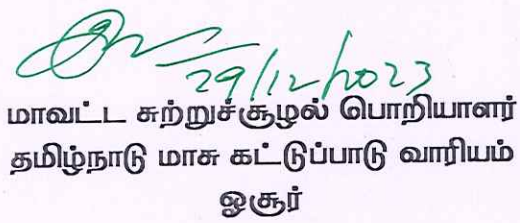 29/12/2023
மாவட்ட சுற்றுச்சூழல் பொறியாளர்
தமிழ்நாடு மாசு கட்டுப்பாடு வாரியம்
ஓசூர்